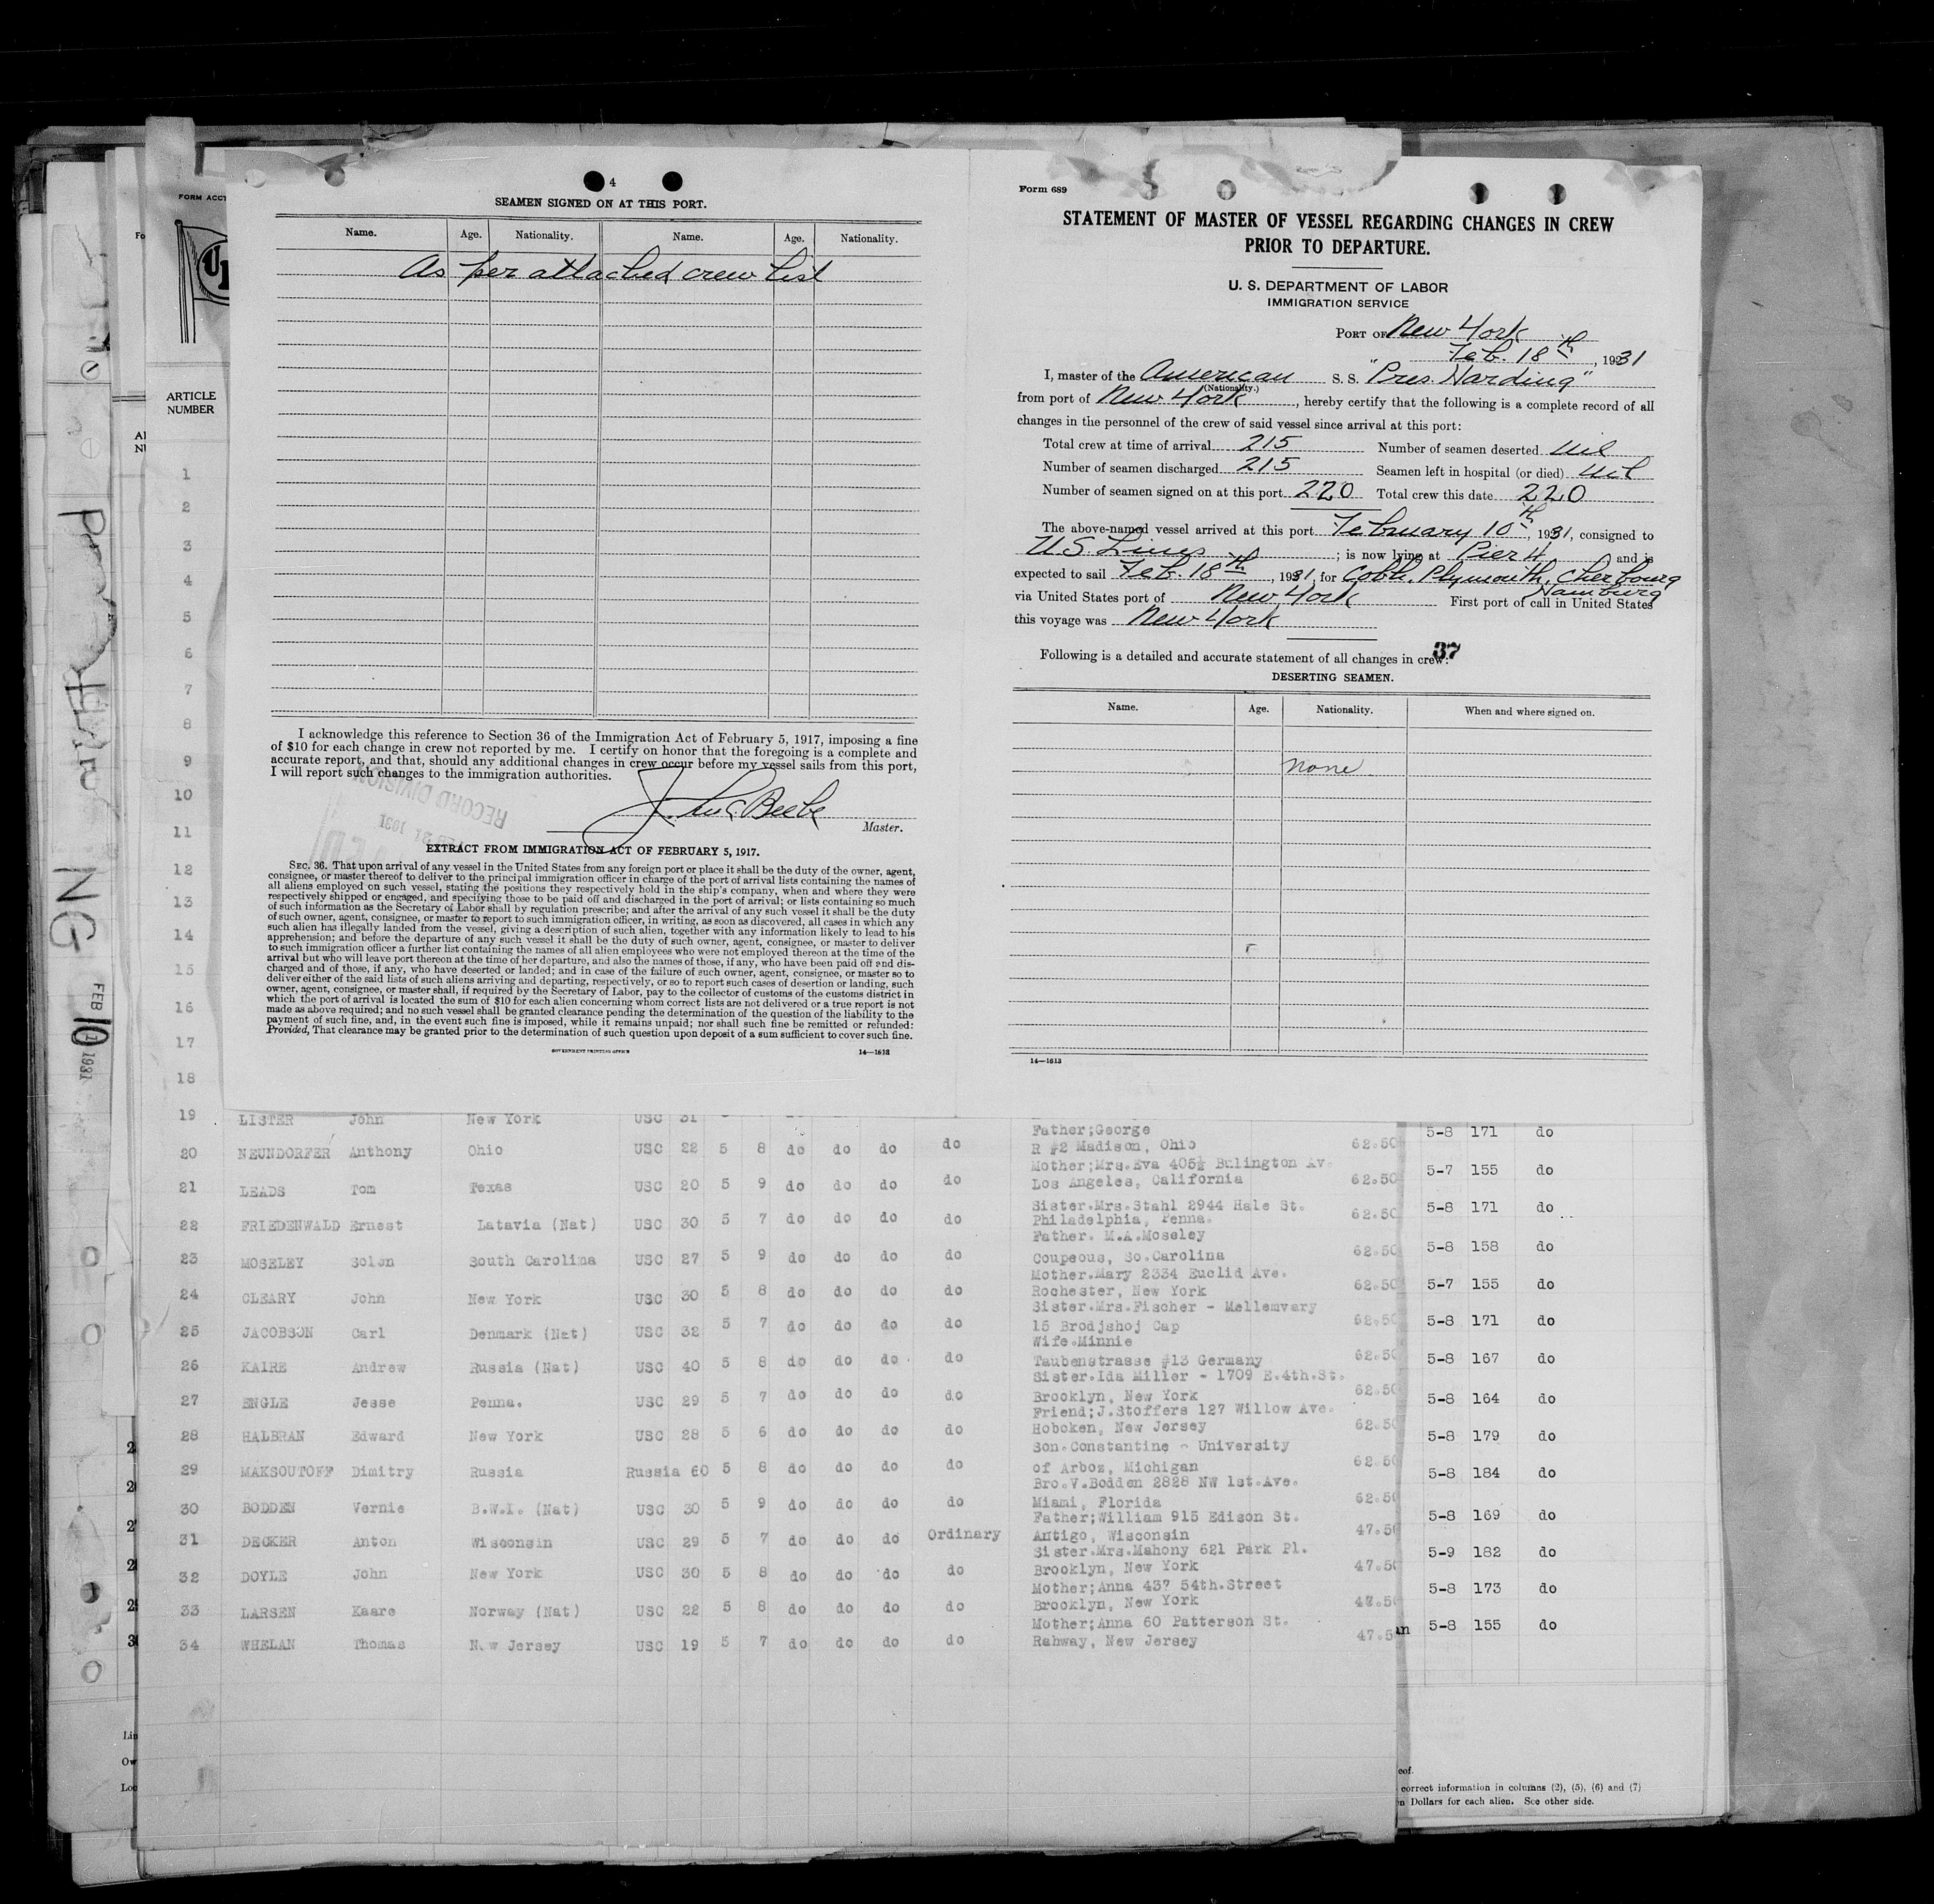 4
SEAMEN SIGNED ON AT THIS PORT.
Name. Age. Nationality. Name. Age. Nationality.
As per attached crew list
I acknowledge this reference to Section 36 of the Immigration Act of February 5, 1917, imposing a fine
of $10 for each change in crew not reported by me. I certify on honor that the foregoing is a complete and
accurate report, and that, should any additional changes in crew occur before my vessel sails from this port,
I will report such changes to the immigration authorities.
RECORD DIVISION
1931
Beebe
Master.
EXTRACT FROM IMMIGRATION ACT OF FEBRUARY 5, 1917.
SEC. 36. That upon arrival of any vessel in the United States from any foreign port or place it shall be the duty of the owner, agent,
consignee, or master thereof to deliver to the principal immigration officer in charge of the port of arrival lists containing the names of
all aliens employed on such vessel, stating the positions they respectively hold in the ship's company, when and where they were
respectively shipped or engaged, and specifying those to be paid off and discharged in the port of arrival; or lists containing so much
of such information as the Secretary of Labor shall by regulation prescribe; and after the arrival of any such vessel it shall be the duty
of such owner, agent, consignee, or master to report to such immigration officer, in writing, as soon as discovered, all cases in which any
such alien has illegally landed from the vessel, giving a description of such alien, together with any information likely to lead to his
apprehension; and before the departure of any such vessel it shall be the duty of such owner, agent, consignee, or master to deliver
to such immigration officer a further list containing the names of all alien employees who were not employed thereon at the time of the
arrival but who will leave port thereon at the time of her departure, and also the names of those, if any, who have been paid off and dis-
charged and of those, if any, who have deserted or landed; and in case of the failure of such owner, agent, consignee, or master so to
deliver either of the said lists of such aliens arriving and departing, respectively, or so to report such cases of desertion or landing, such
owner, agent, consignee, or master shall, if required by the Secretary of Labor, pay to the collector of customs of the customs district in
which the port of arrival is located the sum of $10 for each alien concerning whom correct lists are not delivered or a true report is not
made as above required; and no such vessel shall be granted clearance pending the determination of the question of the liability to the
payment of such fine, and, in the event such fine is imposed, while it remains unpaid; nor shall such fine be remitted or refunded:
Provided, That clearance may be granted prior to the determination of such question upon deposit of a sum sufficient to cover such fine.
GOVERNMENT PRINTING OFFICE 14—1613
Form 689
STATEMENT OF MASTER OF VESSEL REGARDING CHANGES IN CREW
PRIOR TO DEPARTURE.
U. S. DEPARTMENT OF LABOR
IMMIGRATION SERVICE
PORT OF New York
Feb. 18th, 1931
I, master of the American S. S. "Pres. Harding"
(Nationality.)
from port of New York, hereby certify that the following is a complete record of all
changes in the personnel of the crew of said vessel since arrival at this port:
Total crew at time of arrival 215 Number of seamen deserted nil
Number of seamen discharged 215 Seamen left in hospital (or died) nil
Number of seamen signed on at this port 220 Total crew this date 220
The above-named vessel arrived at this port February 10th, 1931, consigned to
U.S. Lines ; is now lying at Pier 4 and is
expected to sail Feb. 18th, 1931, for Cobh, Plymouth, Cherbourg
Hamburg
via United States port of New York First port of call in United States
this voyage was New York
37
Following is a detailed and accurate statement of all changes in crew:
DESERTING SEAMEN.
Name. Age. Nationality. When and where signed on.
None
14—1613
FORM ACCT
ARTICLE
NUMBER
1
2
3
4
5
6
7
8
9
10
11
12
13
14
15
16
17
18
NG
FEB 10 1931
19 LISTER John New York USC 31
Father;George
20 NEUNDORFER Anthony Ohio USC 22 5 8 do do do do R #2 Madison, Ohio 62.50
Mother;Mrs.Eva 405½ Bulington Av.
21 LEADS Tom Texas USC 20 5 9 do do do do Los Angeles, California 62.50
Sister.Mrs.Stahl 2944 Hale St.
22 FRIEDENWALD Ernest Latavia (Nat) USC 30 5 7 do do do do Philadelphia, Penna. 62.50
Father. M.A.Moseley
23 MOSELEY Solon South Carolina USC 27 5 9 do do do do Coupeous, So.Carolina 62.50
Mother.Mary 2334 Euclid Ave.
24 CLEARY John New York USC 30 5 8 do do do do Rochester, New York 62.50
Sister.Mrs.Fischer - Mellemvary
25 JACOBSON Carl Denmark (Nat) USC 32 5 7 do do do do 15 Brodjshoj Cap 62.50
Wife.Minnie
26 KAIRE Andrew Russia (Nat) USC 40 5 8 do do do do Taubenstrasse #13 Germany 62.50
Sister.Ida Miller - 1709 E.4th.St.
27 ENGLE Jesse Penna. USC 29 5 7 do do do do Brooklyn, New York 62.50
Friend;J.Stoffers 127 Willow Ave.
28 HALBRAN Edward New York USC 28 5 6 do do do do Hoboken, New Jersey 62.50
Son.Constantine - University
29 MAKSOUTOFF Dimitry Russia Russia 60 5 8 do do do do of Arboz, Michigan 62.50
Bro.V.Bodden 2828 NW 1st.Ave.
30 BODDEN Vernie B.W.I. (Nat) USC 30 5 9 do do do do Miami, Florida 62.50
Father;William 915 Edison St.
31 DECKER Anton Wisconsin USC 29 5 7 do do do Ordinary Antigo, Wisconsin 47.50
Sister.Mrs.Mahony 621 Park Pl.
32 DOYLE John New York USC 30 5 8 do do do do Brooklyn, New York 47.50
Mother;Anna 437 54th.Street
33 LARSEN Kaare Norway (Nat) USC 22 5 8 do do do do Brooklyn, New York 47.50
Mother;Anna 60 Patterson St.
34 WHELAN Thomas New Jersey USC 19 5 7 do do do do Rahway, New Jersey 47.5
5-8 171 do
5-7 155 do
5-8 171 do
5-8 158 do
5-7 155 do
5-8 171 do
5-8 167 do
5-8 164 do
5-8 179 do
5-8 184 do
5-8 169 do
5-9 182 do
5-8 173 do
5-8 155 do
eof.
correct information in columns (2), (5), (6) and (7)
n Dollars for each alien. See other side.